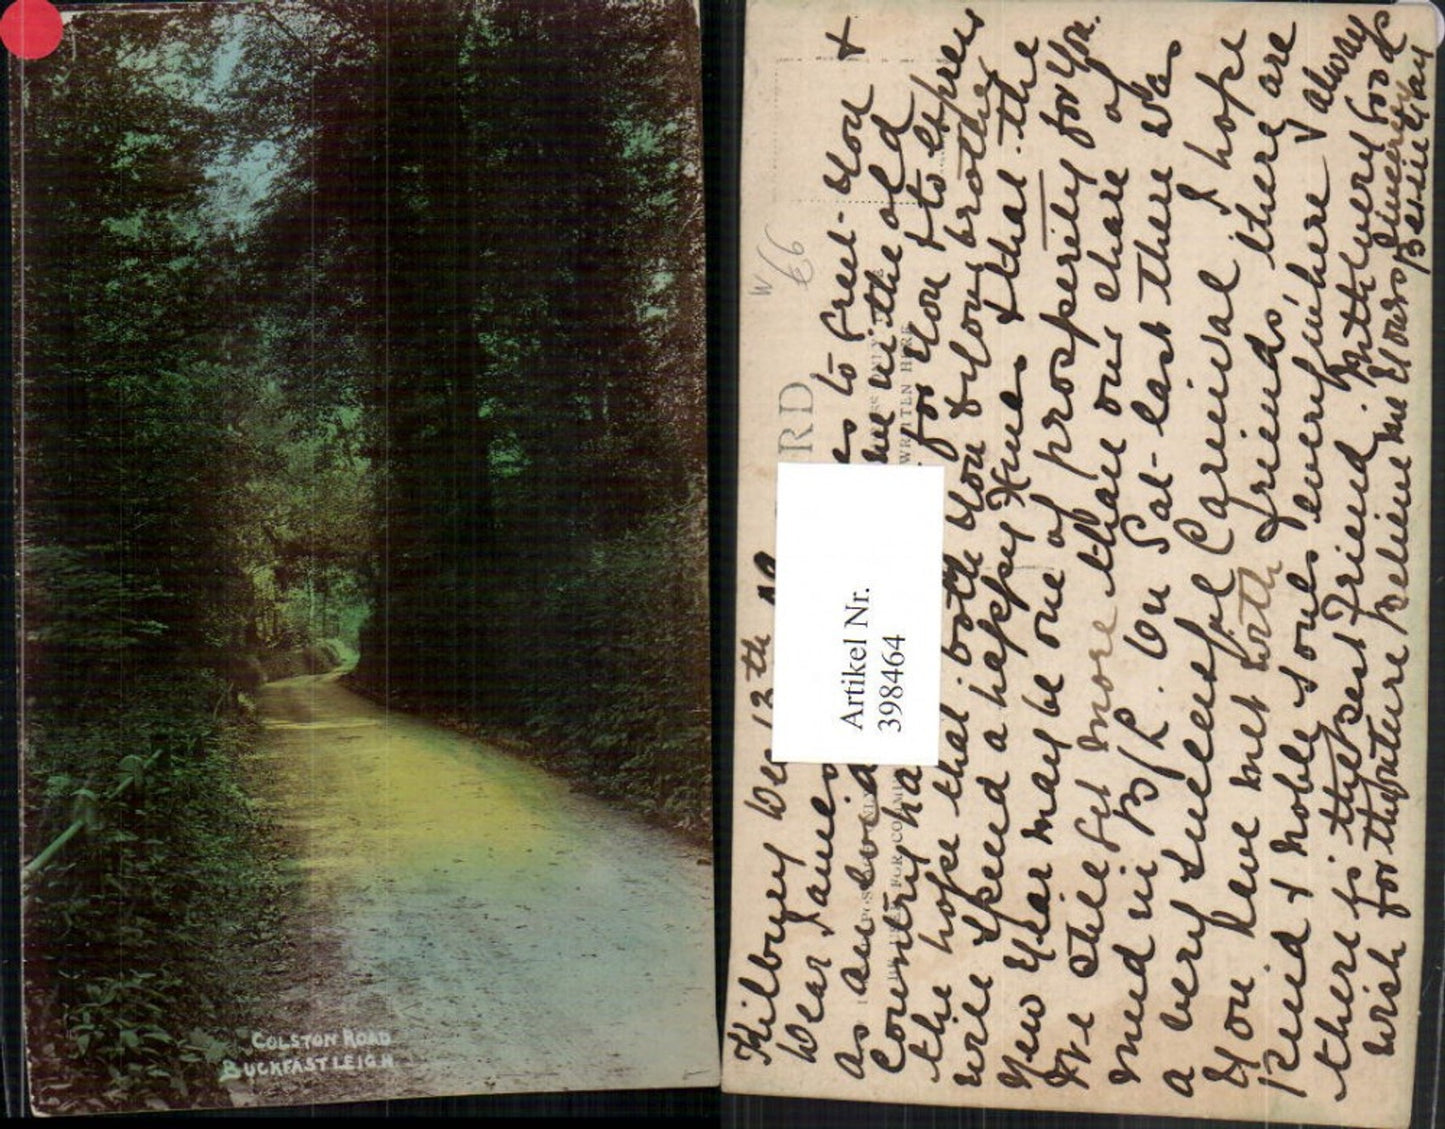 COLSTON ROAD
BUCKFASTLEIGH
Artikel Nr.
398464
W
66
RD
WRITTEN HERE
Kilbury Dec 12th
Dear James to greet you &
as in the old
Country for you & to express
the hope that both you & your brother
will spend a happy Xmas & that the
New Year may be one of prosperity for you.
We still get more than our share of
mud in B/L. On Sat- last there was
a very successful Carnival I hope
you have met with friends, there are
kind & noble souls everywhere & always
there is the best Friend. With every good
wish for the future Believe me Yours sincerely
Bessie